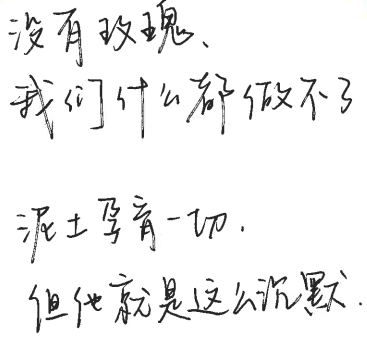 没有玫瑰、
我们什么都做不了
泥土孕育一切.
但他就是这么沉默.